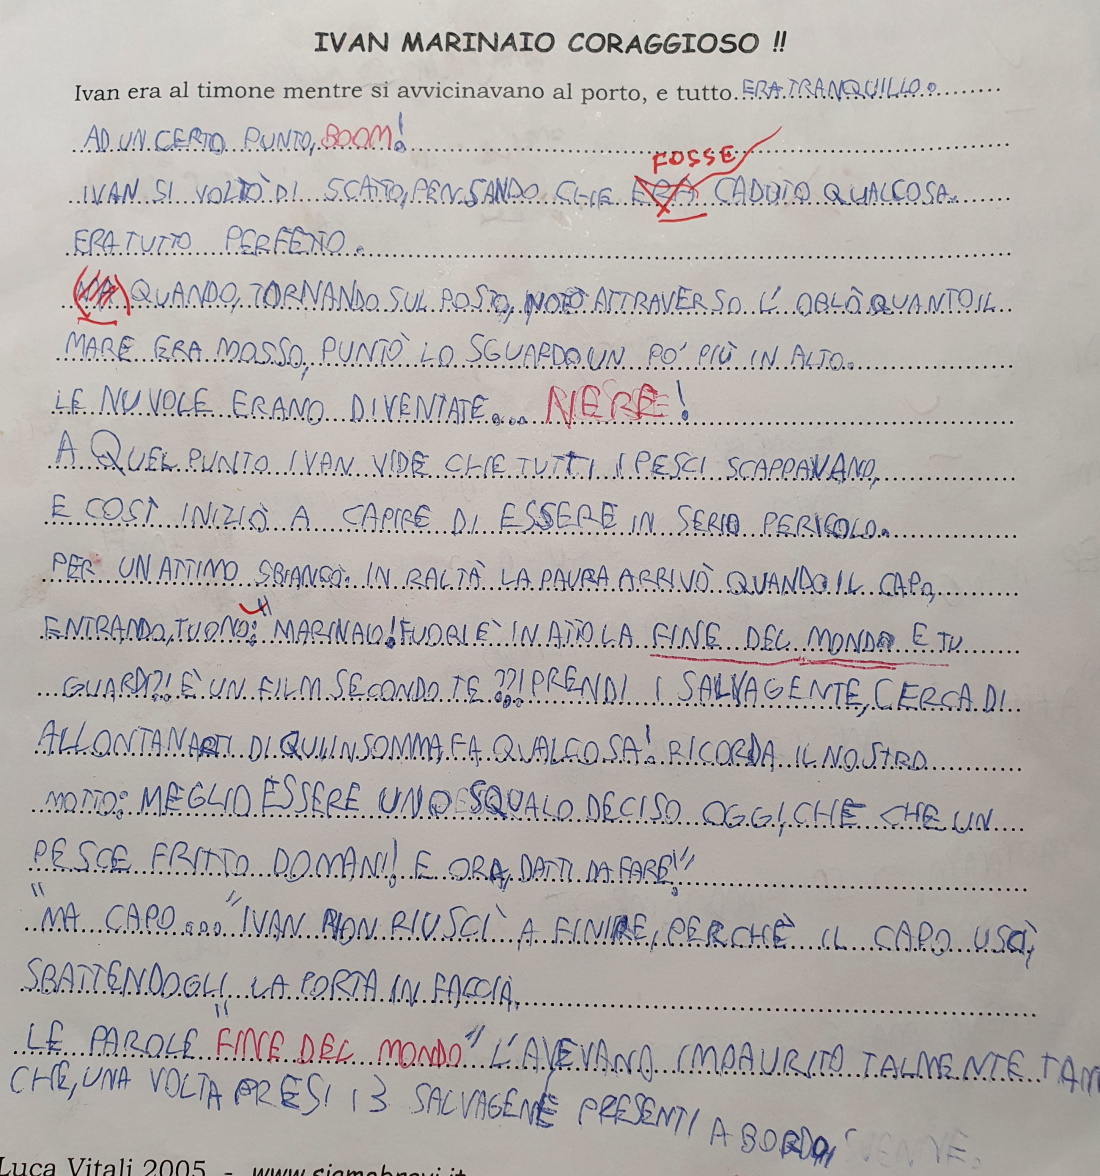 IVAN MARINAIO CORAGGIOSO !!
Ivan era al timone mentre si avvicinavano al porto, e tutto ERA TRANQUILLO.
AD UN CERTO PUNTO, BOOM!
FOSSE
IVAN SI VOLTÒ DI SCATTO, PENSANDO CHE ERA CADUTO QUALCOSA.
ERA TUTTO PERFETTO.
(MA) QUANDO, TORNANDO SUL POSTO, NOTÒ ATTRAVERSO L'OBLÒ QUANTO IL
MARE ERA MOSSO, PUNTÒ LO SGUARDO UN PO' PIÙ IN ALTO.
LE NUVOLE ERANO DIVENTATE... NERE!
A QUEL PUNTO IVAN VIDE CHE TUTTI I PESCI SCAPPAVANO,
E COSÌ INIZIÒ A CAPIRE DI ESSERE IN SERIO PERICOLO.
PER UN ATTIMO SBIANCÒ. IN RALTÀ LA PAURA ARRIVÒ QUANDO IL CAPO,
ENTRANDO, TUONÒ: "MARINAIO! FUORI È IN ATTO LA FINE DEL MONDO E TU
GUARDI?! È UN FILM SECONDO TE ??! PRENDI I SALVAGENTE, CERCA DI
ALLONTANARTI DI QUI INSOMMA, FA QUALCOSA! RICORDA IL NOSTRO
MOTTO: MEGLIO ESSERE UNO SQUALO DECISO OGGI, CHE CHE UN
PESCE FRITTO DOMANI! E ORA, DATTI DA FARE!"
"MA CAPO..." IVAN NON RIUSCÌ A FINIRE, PERCHÈ IL CAPO USCÌ,
SBATTENDOGLI LA PORTA IN FACCIA.
LE PAROLE "FINE DEL MONDO" L'AVEVANO IMPAURITO TALMENTE TAN
CHE, UNA VOLTA PRESI I 3 SALVAGENTE PRESENTI A BORDO, SVENNE.
Luca Vitali 2005 - www.siamobravi.it